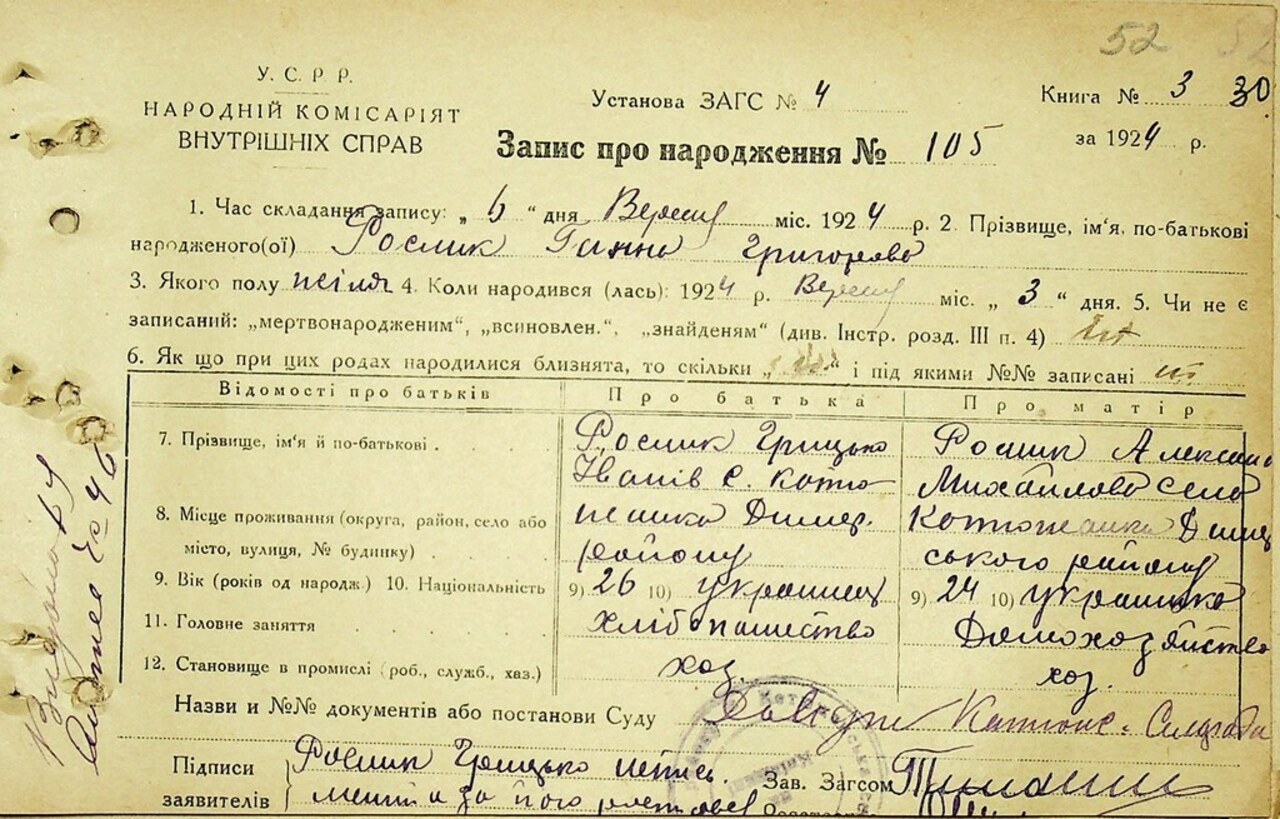 52
У. С. Р. Р.
НАРОДНІЙ КОМІСАРІЯТ
ВНУТРІШНІХ СПРАВ
Установа ЗАГС № 4
Книга № 3 30
Запис про народження № 105
за 1924 р.
1. Час складання запису: „ 6 “ дня Вересня міс. 1924 р. 2. Прізвище, ім'я, по-батькові
народженого(ої) Рослик Ганна Григорова
3. Якого полу жіноч 4. Коли народився (лась): 1924 р. Вересня міс. „ 3 “ дня. 5. Чи не є
записаний: „мертвонародженим“, „всиновлен.“, „знайденям“ (див. Інстр. розд. III п. 4) ні
6. Як що при цих родах народилися близнята, то скільки „ “ і під якими №№ записані ні
Відомості про батьків Про батька Про матір
7. Прізвище, ім'я й по-батькові . Рослик Грицько Рослик Александ
Іванів с. Катю Михайлова Село
8. Місце проживання (округа, район, село або жанка Димер. Катюжанка Димер
місто, вулиця, № будинку) району ського району
9. Вік (років од народж.) 10. Національність 9) 26 10) українец 9) 24 10) українка
11. Головне заняття хлібопашество Домохозяйство
12. Становище в промислі (роб., служб., хаз.) хоз. хоз.
Назви и №№ документів або постанови Суду Катюж. Сельрада
Підписи Рослик Грицько непись
заявителів менний а за його
Зав. Загсом